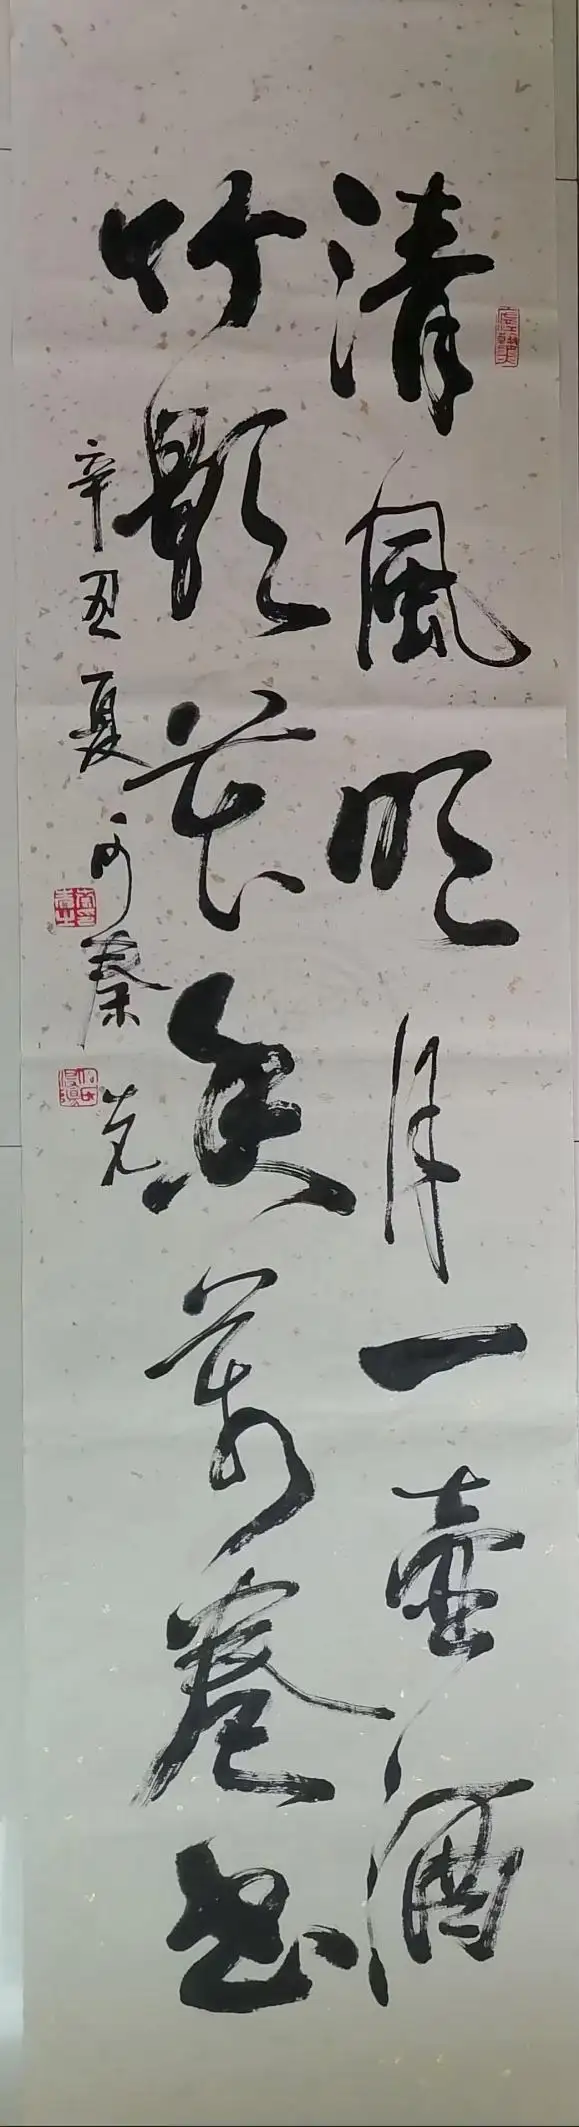 清風明月一壺酒
竹影花香萬卷書
辛丑夏
秦克